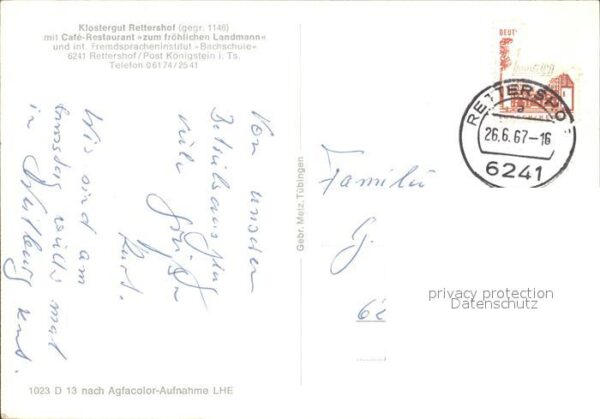 Klostergut Rettershof (gegr. 1146)
mit Café-Restaurant »zum fröhlichen Landmann«
und int. Fremdspracheninstitut »Bachschule«
6241 Rettershof/Post Königstein i. Ts.
Telefon 06174/2541
Von unserem
Betriebsausflug
viele Grüße
Kurt.
Wir sind am
Samstag wieder mal
in
Gebr. Metz, Tübingen
DEUT
RETTERSHO
a
26.6.67-16
6241
Familie
G.
62
privacy protection
Datenschutz
1023 D 13 nach Agfacolor-Aufnahme LHE